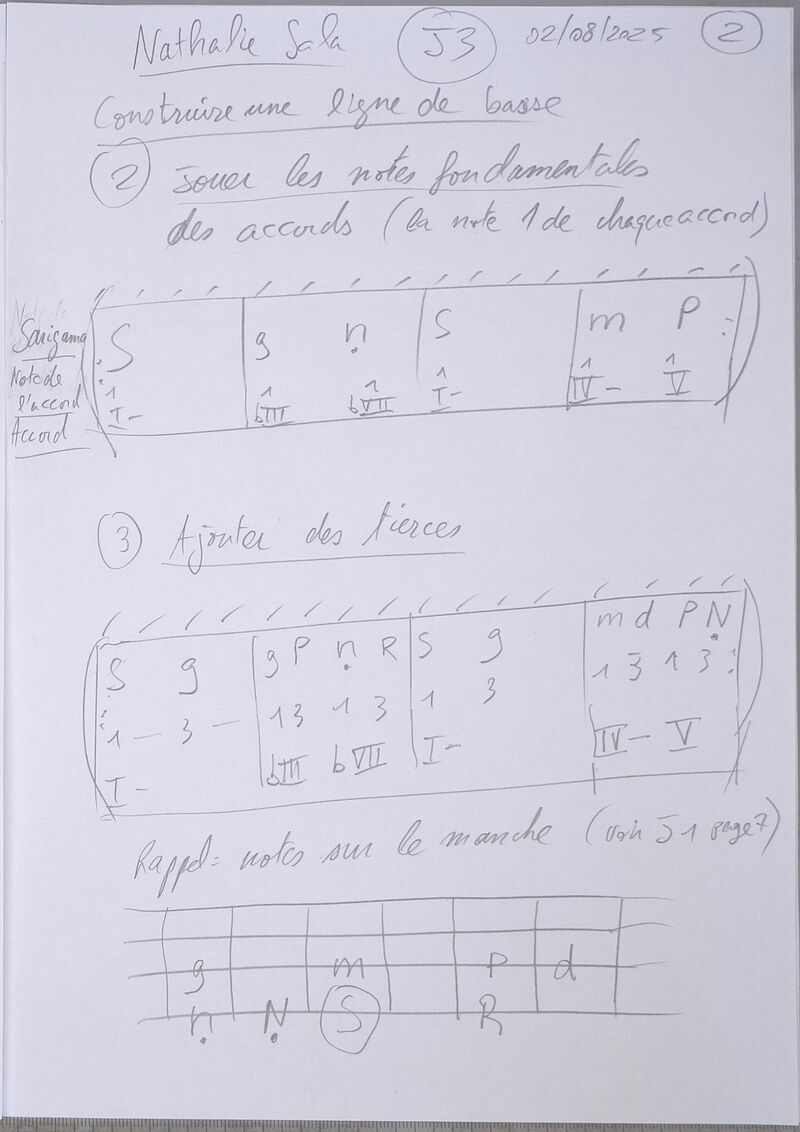 Nathalie Sala J3 02/08/2025 2
Construire une ligne de basse
2 Jouer les notes fondamentales
des accords (la note 1 de chaque accord)
Sarigama S g ṇ S m P
Note de l'accord 1 1 1 1 1 1
Accord I- bIII bVII I- IV- V
3 Ajouter des tierces
S g g P ṇ R S g m d P Ṇ
1 - 3 - 1 3 1 3 1 3 1 3 1 3
I- bIII bVII I- IV- V
Rappel = notes sur le manche (voir J1 page 7)
g m P d
ṇ Ṇ S R